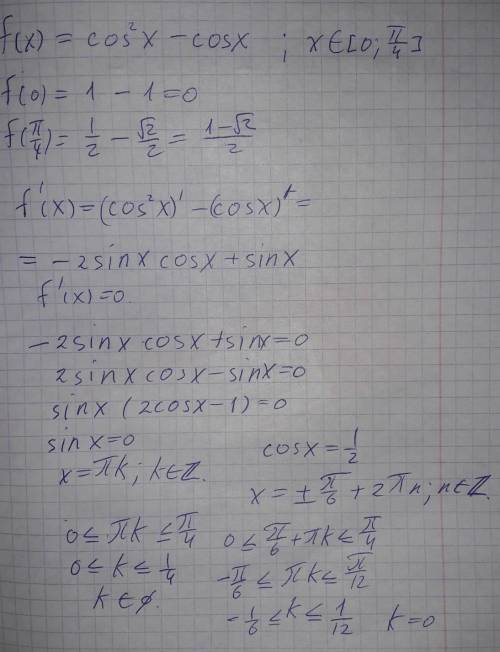 f(x) = cos²x - cosx ; x∈[0; π/4]
f(0) = 1 - 1 = 0
f(π/4) = 1/2 - √2/2 = (1-√2)/2
f'(x) = (cos²x)' - (cosx)' =
= -2sinx cosx + sinx
f'(x) = 0.
-2sinx cosx + sinx = 0
2sinx cosx - sinx = 0
sinx (2cosx - 1) = 0
sinx = 0
x = πk; k∈ℤ.
0 ≤ πk ≤ π/4
0 ≤ k ≤ 1/4
k ∈ ø.
cosx = 1/2
x = ± π/6 + 2πn; n∈ℤ.
0 ≤ π/6 + πk ≤ π/4
-π/6 ≤ πk ≤ π/12
-1/6 ≤ k ≤ 1/12 k = 0